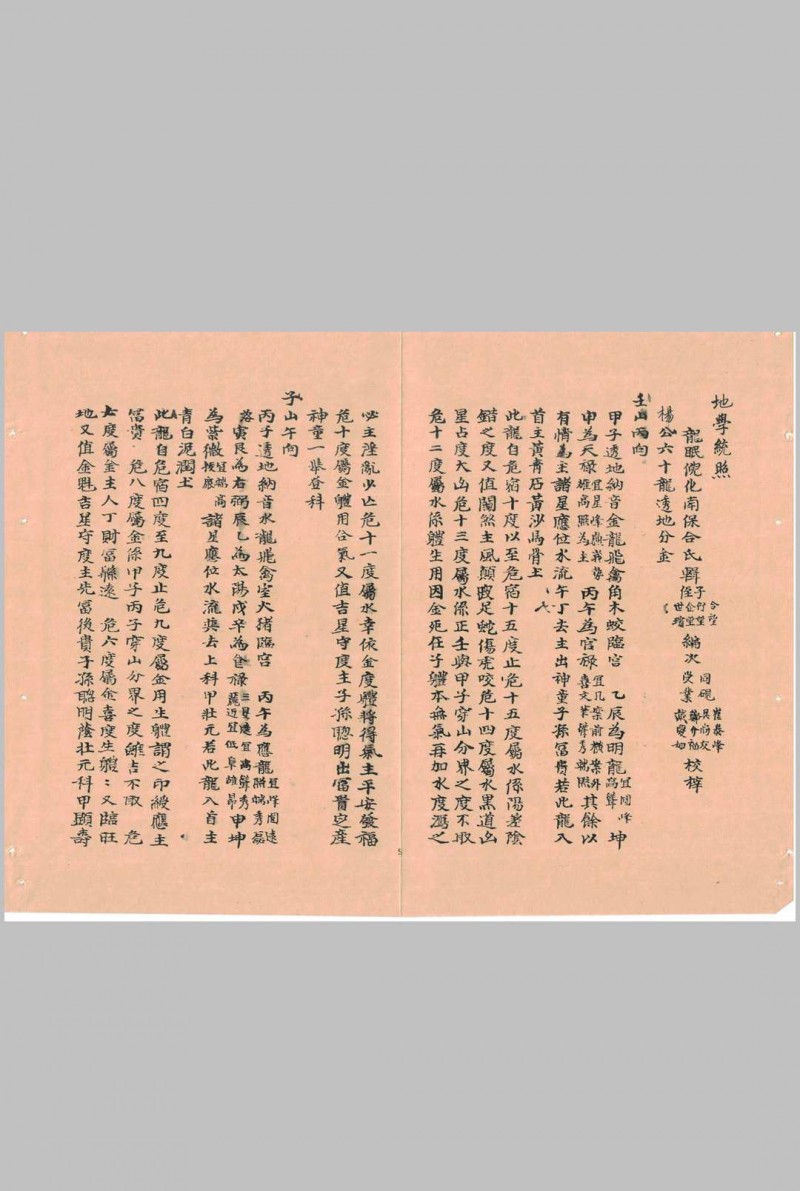 地學統照
龍眠倪化南保合氏輯 子行望 侄企望 世璿 編次 受業 校梓
楊公六十龍透地分金
壬山丙向
甲子透地納音金龍飛禽角木蛟臨宮 乙辰為明龍宜圓峰高聳 坤
申為天祿宜星峰雄高照為主 丙午為官祿宜几案前橫案外喜文筆聳秀端照 其餘以
有情為主諸星應位水流午丁去主出神童子孫富貴若此龍入
首主黃青石黃沙為骨土
此龍自危宿十度以至危宿十五度止危十五度屬水係陽差陰
錯之度又值關煞主風顛跛足蛇傷虎咬危十四度屬水黑道凶
星占度大凶危十三度屬水係正壬與甲子穿山分界之度不取
危十二度屬水係體生用因金死在子體本無氣再加水度洩之
必主淫亂少亡危十一度屬水幸依金度體將得氣主平安發福
危十度屬金體用合氣又值吉星守度主子孫聰明出富貴定產
神童一舉登科
子山午向
丙子透地納音水龍飛禽室火猪臨宮 丙午為應龍宜峰圓遠聳端秀磊
落寅艮為右弼 乙為太陽戌辛為食祿 宜高聳秀麗近宜低阜雄昂 申坤
為紫微宜端高拔應 諸星應位水流巽去上科甲壯元若此龍入首主
青白泥潤土
此龍自危宿四度至九度止危九度屬金用生體謂之印綬應主
富貴 危八度屬金係甲子丙子穿山分界之度雖吉不取 危
七度屬金主人丁財富綿遠 危六度屬金喜度生體體又臨旺
地又值金魁吉星守度主先富後貴子孫聰明蔭壯元科甲顯壽